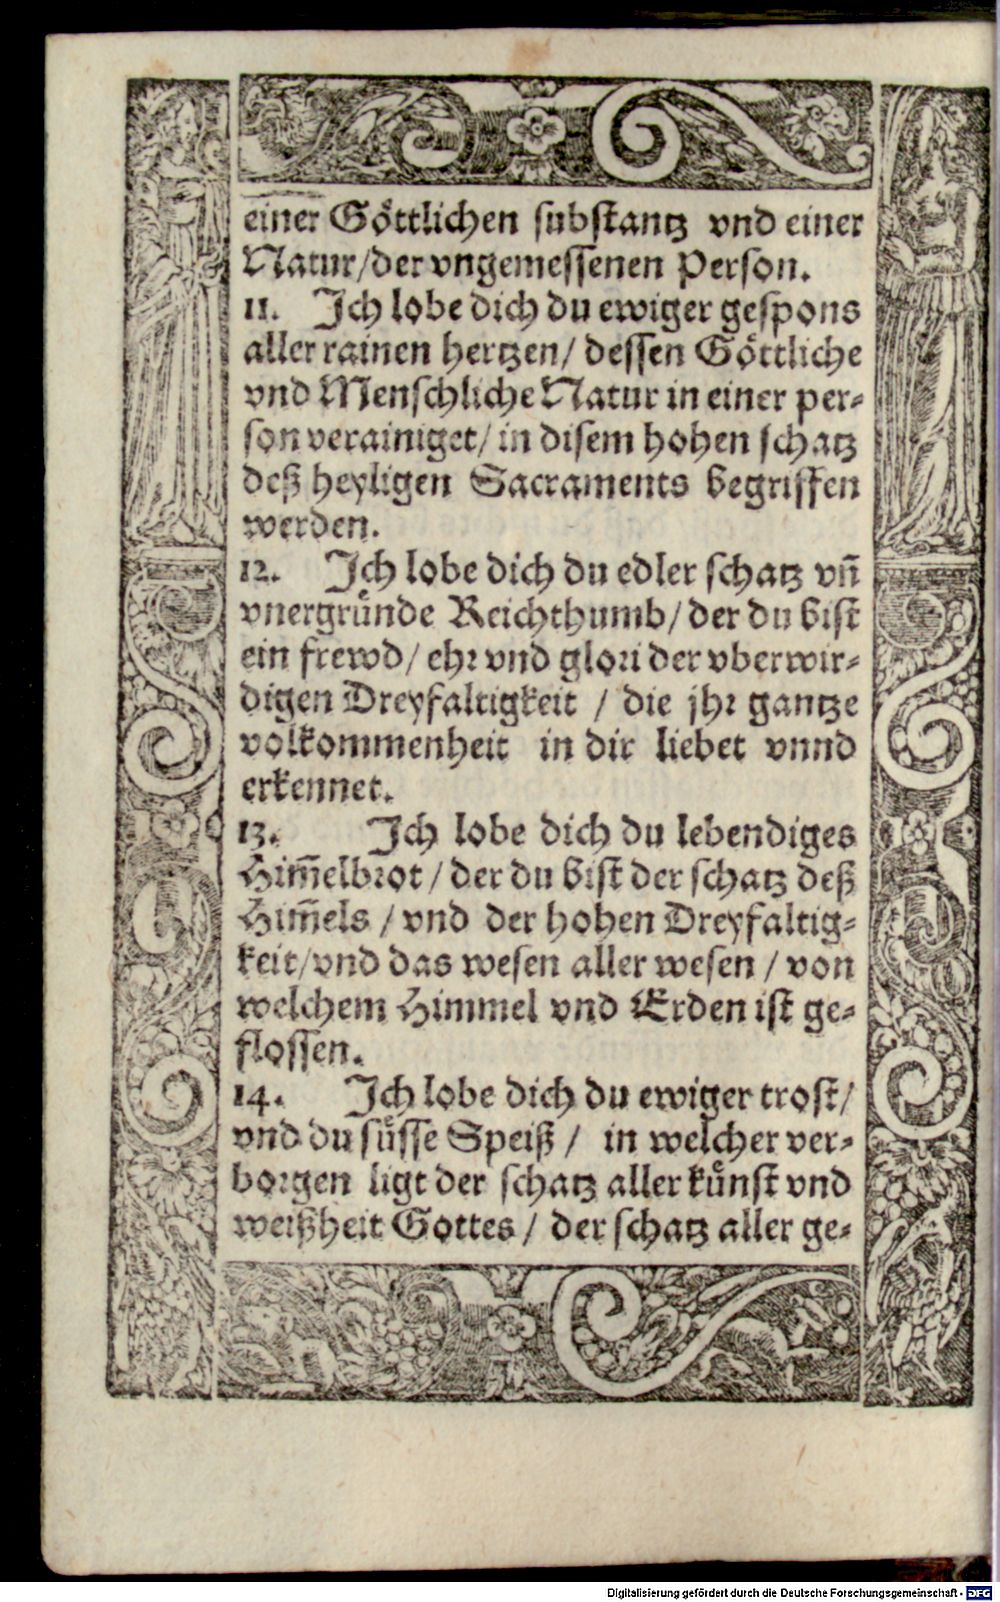 einer Göttlichen substantz vnd einer
Natur/der vngemessenen Person.
11. Ich lobe dich du ewiger gespons
aller rainen hertzen/ dessen Göttliche
vnd Menschliche Natur in einer per-
son verainiget/ in disem hohen schatz
deß heyligen Sacraments begriffen
werden.
12. Ich lobe dich du edler schatz vñ
vnergründe Reichthumb/ der du bist
ein frewd/ ehr vnd glori der vberwir-
digen Dreyfaltigkeit / die jhr gantze
volkommenheit in dir liebet vnnd
erkennet.
13. Ich lobe dich du lebendiges
Him̃elbrot/ der du bist der schatz deß
Him̃els / vnd der hohen Dreyfaltig-
keit/vnd das wesen aller wesen / von
welchem Himmel vnd Erden ist ge-
flossen.
14. Ich lobe dich du ewiger trost/
vnd du süsse Speiß / in welcher ver-
borgen ligt der schatz aller künst vnd
weißheit Gottes / der schatz aller ge-
Digitalisierung gefördert durch die Deutsche Forschungsgemeinschaft - DFG